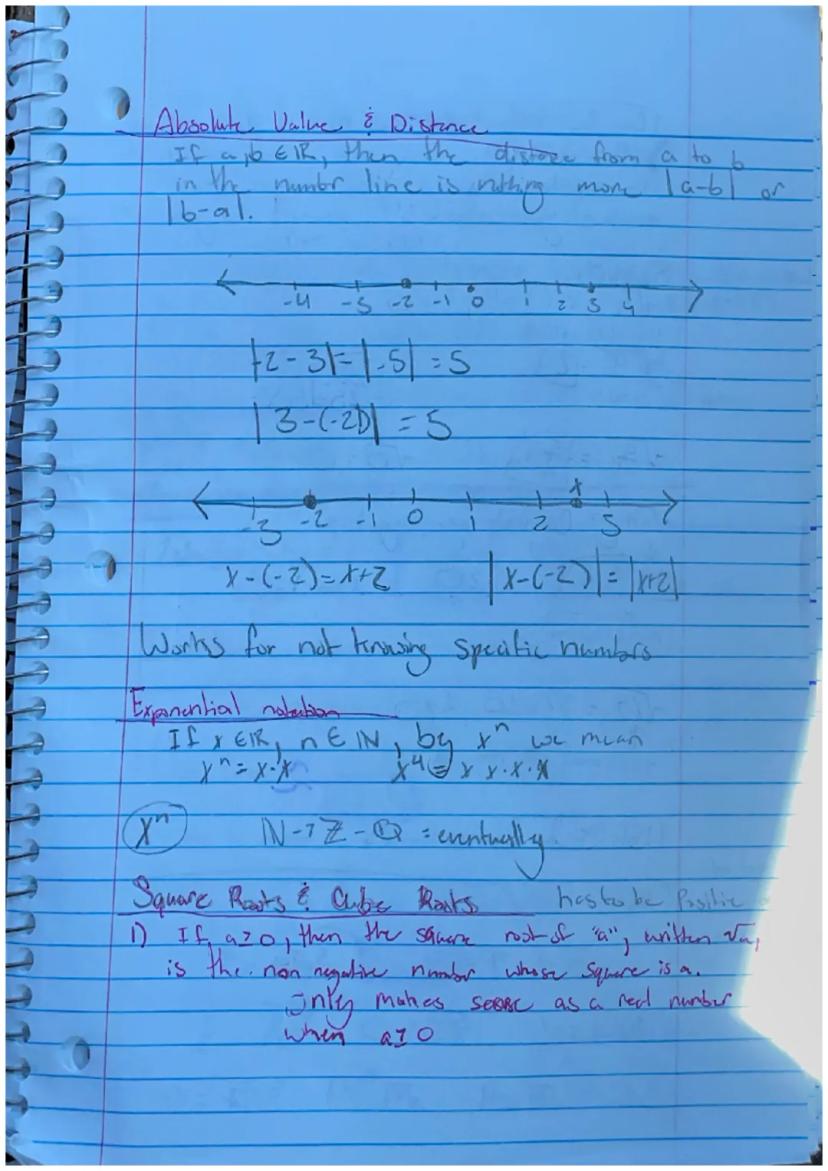 Absolute Value & Distance
If a,b ∈ ℝ, then the distance from a to b
in the number line is nothing more |a-b| or
|b-a|.
-4 -3 -2 -1 0 1 2 3 4
|-2-3|=|-5|=5
|3-(-2)|=5
x
-3 -2 -1 0 1 2 5
x-(-2)=x+2 |x-(-2)|=|x+2|
Works for not knowing specific numbers
Exponential notation
If x ∈ ℝ, n ∈ ℕ, by xⁿ we mean
xⁿ = x·x x⁴ = x x·x·x
xⁿ ℕ-7 ℤ - ℚ = eventually
Square Roots & Cube Roots has to be Positive
1) If a≥0, then the square root of "a", written √a,
is the non negative number whose square is a.
only makes sense as a real number
when a≥0